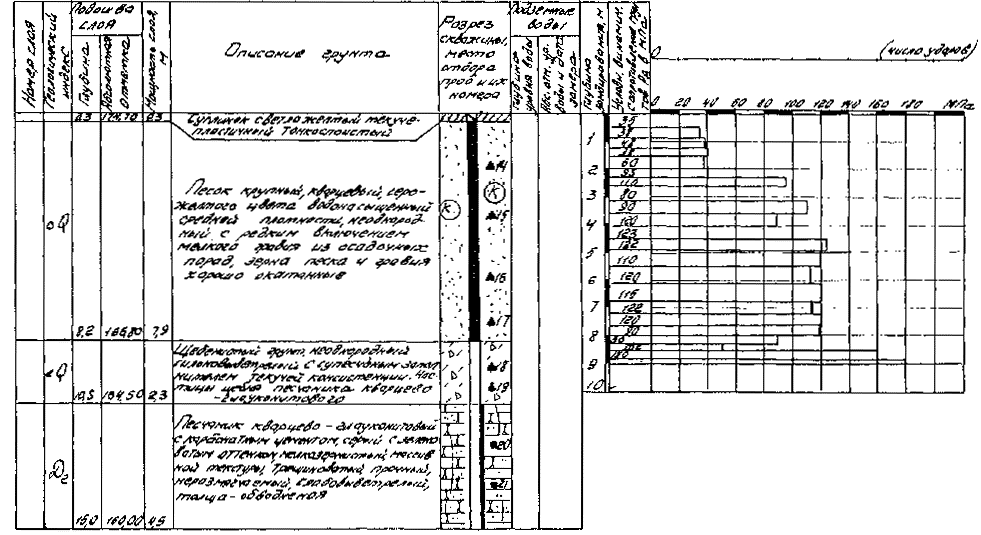 Номер слоя
Геологический индекс
Подошва слоя
Глубина
Абсолютная отметка
Мощность слоя, м
Описание грунта
Разрез
скважины,
место
отбора
проб и их
номера
Подземные
воды
Глубина
замера
Глубина
зондирования, м
0
(число ударов)
0 20 40 60 80 100 120 140 160 180 МПа
0,3
0,3
Суглинок светложелтый текуче-
пластичный тонкослоистый
Песок крупный, кварцевый, серо-
желтого цвета водонасыщенный
средней плотности, неоднород-
ный с редким включением
мелкого гравия из осадочных
пород, зерна песка и гравия
хорошо окатанные
Q
8,2 166,80 7,9
К
К
14
15
16
17
Щебенистый грунт, неоднородный
сильновыветрелый с супесчаным запол
нителем текучей консистенции. Час
тицы щебня песчаника кварцево
-глауконитового
Q
10,5 164,50 2,3
18
19
Песчаник кварцево-глауконитовый
с карбонатным цементом, серый с зелено
ватым оттенком, мелкозернистый, массив
ной текстуры, трещиноватый, прочный,
неразмягчаемый, слабовыветрелый,
толща - обводненая
D₂
15,0 160,00 4,5
20
21
1
2
3
4
5
6
7
8
9
10
35
38
48
38
60
93
110
80
90
120
123
132
110
120
115
122
120
80